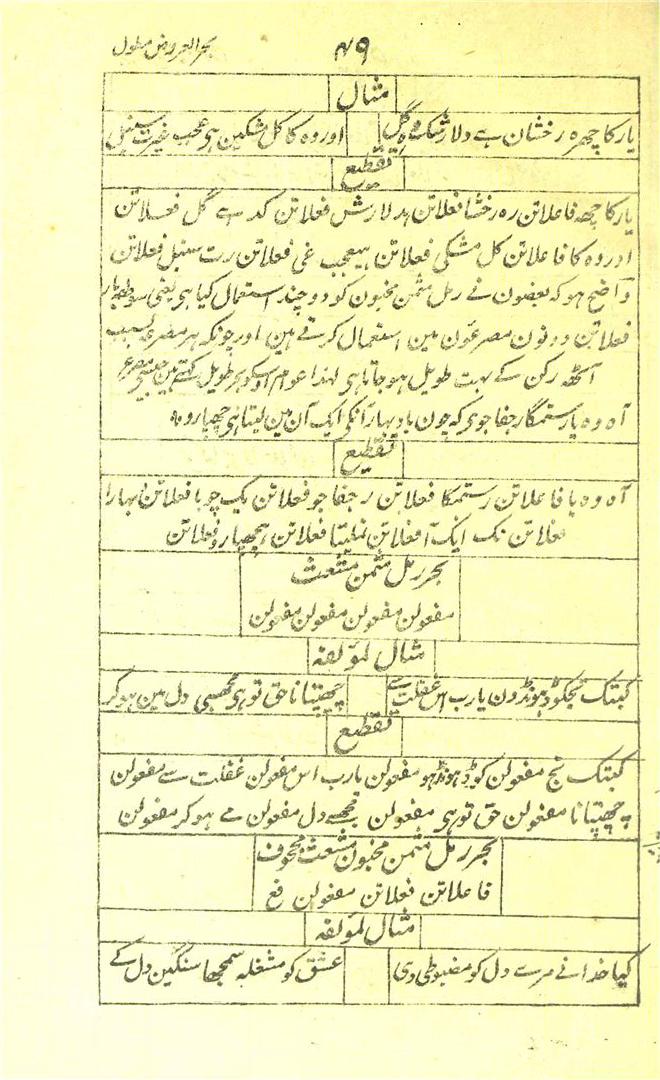 ۴۹ بحر العروض مطول
مثال
یار کا چہرہ رخشان ہے دلا رشک مہ گل اور وہ کاکل مشکین ہی عجب غیرت سنبل
تقطیع
یار کا چہہ فاعلاتن رہ رخشا فعلاتن ہد لارش فعلاتن کہ گل فعلاتن
اور وہ کا فاعلاتن کل مشکی فعلاتن ہیعجب غی فعلاتن رت سنبل فعلاتن
واضح ہو کہ بعضون نے رمل مثمن مخبون کو دو چند استعمال کیا ہی یعنی
فعلاتن دونون مصرعون مین استعمال کرتے ہین اور چونکہ ہر مصرعہ بسبب
آٹھہ رکن کے بہت طویل ہو جاتا ہی لہذا عوام اوسکو بحر طویل کہتے ہین جیسے مصرع
آہ وہ یار ستمگار جفا جو کہ چون باد بہار آنکی ایک آن مین لیتا ہی چھپا رو
تقطیع
آہ وہ یا فاعلاتن رستمگا فعلاتن ر جفا جو فعلاتن یک چو با فعلاتن بہارا
فعلاتن نک ایک آ فعلاتن نملیتا فعلاتن ہچھپارو فعلاتن
بحر رمل مثمن مشعث
مفعولن مفعولن مفعولن مفعولن
مثال لمؤلفہ
کبتک تجکو ڈہونڈون یارب اس غفلت سے چھپتا ناحق تو ہی مجھسی دل مین ہو کر
تقطیع
کبتک تج مفعولن کو ڈہونڈہو مفعولن یارب اس مفعولن غفلت سے مفعولن
چھپتا نا مفعولن حق تو ہی مفعولن مجھسے دل مفعولن مے ہو کر مفعولن
بحر رمل مثمن مخبون مشعث مجحوف
فاعلاتن فعلاتن مفعولن فع
مثال لمؤلفہ
کیا خدا نے مرے دل کو مضبوطی دی عشق کو مشغلہ سمجھا سنگین دل کے